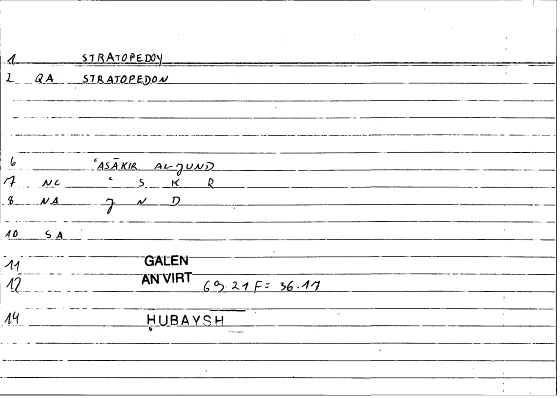 1 STRATOPEDOY
2 QA STRATOPEDON
6 ʿASĀKIR AL-JUND
7 NC ʿ S K R
8 NA J N D
10 SA
11 GALEN
12 AN VIRT 69 21 F = 36.17
14 ḤUBAYSH